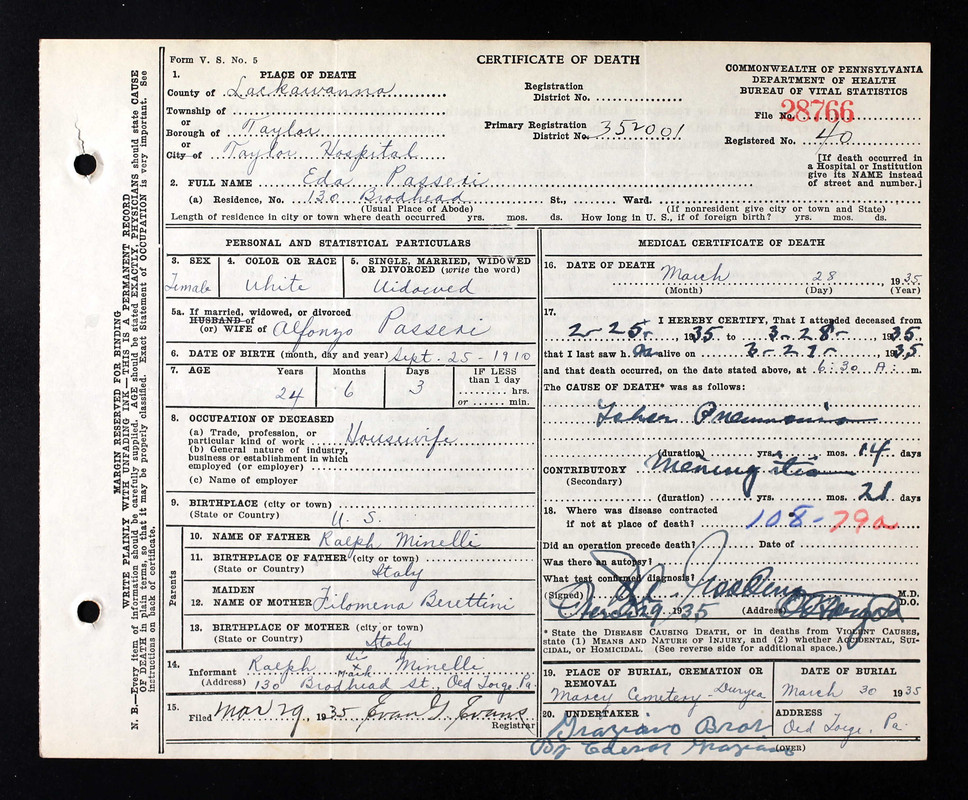 Form V. S. No. 5
CERTIFICATE OF DEATH
COMMONWEALTH OF PENNSYLVANIA
DEPARTMENT OF HEALTH
BUREAU OF VITAL STATISTICS
1. PLACE OF DEATH
County of Lackawanna
Registration District No.
File No. 28766
Township of
or
Borough of Taylor
Primary Registration District No. 352001
Registered No. 40
or
City of Taylor Hospital
[If death occurred in a Hospital or Institution give its NAME instead of street and number.]
2. FULL NAME Eda Passeri
(a) Residence, No. 130 Brodhead St., Ward.
(Usual Place of Abode) (If nonresident give city or town and State)
Length of residence in city or town where death occurred yrs. mos. ds. How long in U. S., if of foreign birth? yrs. mos. ds.
MARGIN RESERVED FOR BINDING
WRITE PLAINLY WITH UNFADING INK—THIS IS A PERMANENT RECORD
N. B.—Every item of information should be carefully supplied. AGE should be stated EXACTLY. PHYSICIANS should state CAUSE
OF DEATH in plain terms, so that it may be properly classified. Exact Statement of OCCUPATION is very important. See
instructions on back of certificate.
PERSONAL AND STATISTICAL PARTICULARS
3. SEX Female
4. COLOR OR RACE White
5. SINGLE, MARRIED, WIDOWED OR DIVORCED (write the word) Widowed
5a. If married, widowed, or divorced
HUSBAND of
(or) WIFE of Alfonzo Passeri
6. DATE OF BIRTH (month, day and year) Sept. 25 - 1910
7. AGE Years 24 Months 6 Days 3 IF LESS than 1 day hrs. or min.
8. OCCUPATION OF DECEASED
(a) Trade, profession, or particular kind of work Housewife
(b) General nature of industry, business or establishment in which employed (or employer)
(c) Name of employer
9. BIRTHPLACE (city or town)
(State or Country) U. S.
Parents
10. NAME OF FATHER Ralph Minelli
11. BIRTHPLACE OF FATHER (city or town)
(State or Country) Italy
12. MAIDEN NAME OF MOTHER Filomena Berettini
13. BIRTHPLACE OF MOTHER (city or town)
(State or Country) Italy
14. Informant Ralph His x Mark Minelli
(Address) 130 Brodhead St., Old Forge, Pa.
15. Filed Mar 29, 1935 Evan G. Evans
Registrar
MEDICAL CERTIFICATE OF DEATH
16. DATE OF DEATH March 28, 1935
(Month) (Day) (Year)
17. I HEREBY CERTIFY, That I attended deceased from
2-25- 1935 to 3-28- 1935
that I last saw h er alive on 3-27- 1935
and that death occurred, on the date stated above, at 6:30 A. m.
The CAUSE OF DEATH* was as follows:
Lobar Pneumonia
(duration) yrs. mos. 14 days
CONTRIBUTORY Meningitis
(Secondary)
(duration) yrs. mos. 21 days
18. Where was disease contracted
if not at place of death? 108-79a
Did an operation precede death? Date of
Was there an autopsy?
What test confirmed diagnosis?
(Signed) M.D.
D.O.
29 1935 (Address)
* State the DISEASE CAUSING DEATH, or in deaths from VIOLENT CAUSES, state (1) MEANS AND NATURE OF INJURY, and (2) whether ACCIDENTAL, SUICIDAL, or HOMICIDAL. (See reverse side for additional space.)
19. PLACE OF BURIAL, CREMATION OR REMOVAL
Marcy Cemetery - Duryea
DATE OF BURIAL
March 30 1935
20. UNDERTAKER
Graziano Bros
By Graziano
ADDRESS
Old Forge, Pa.
(OVER)